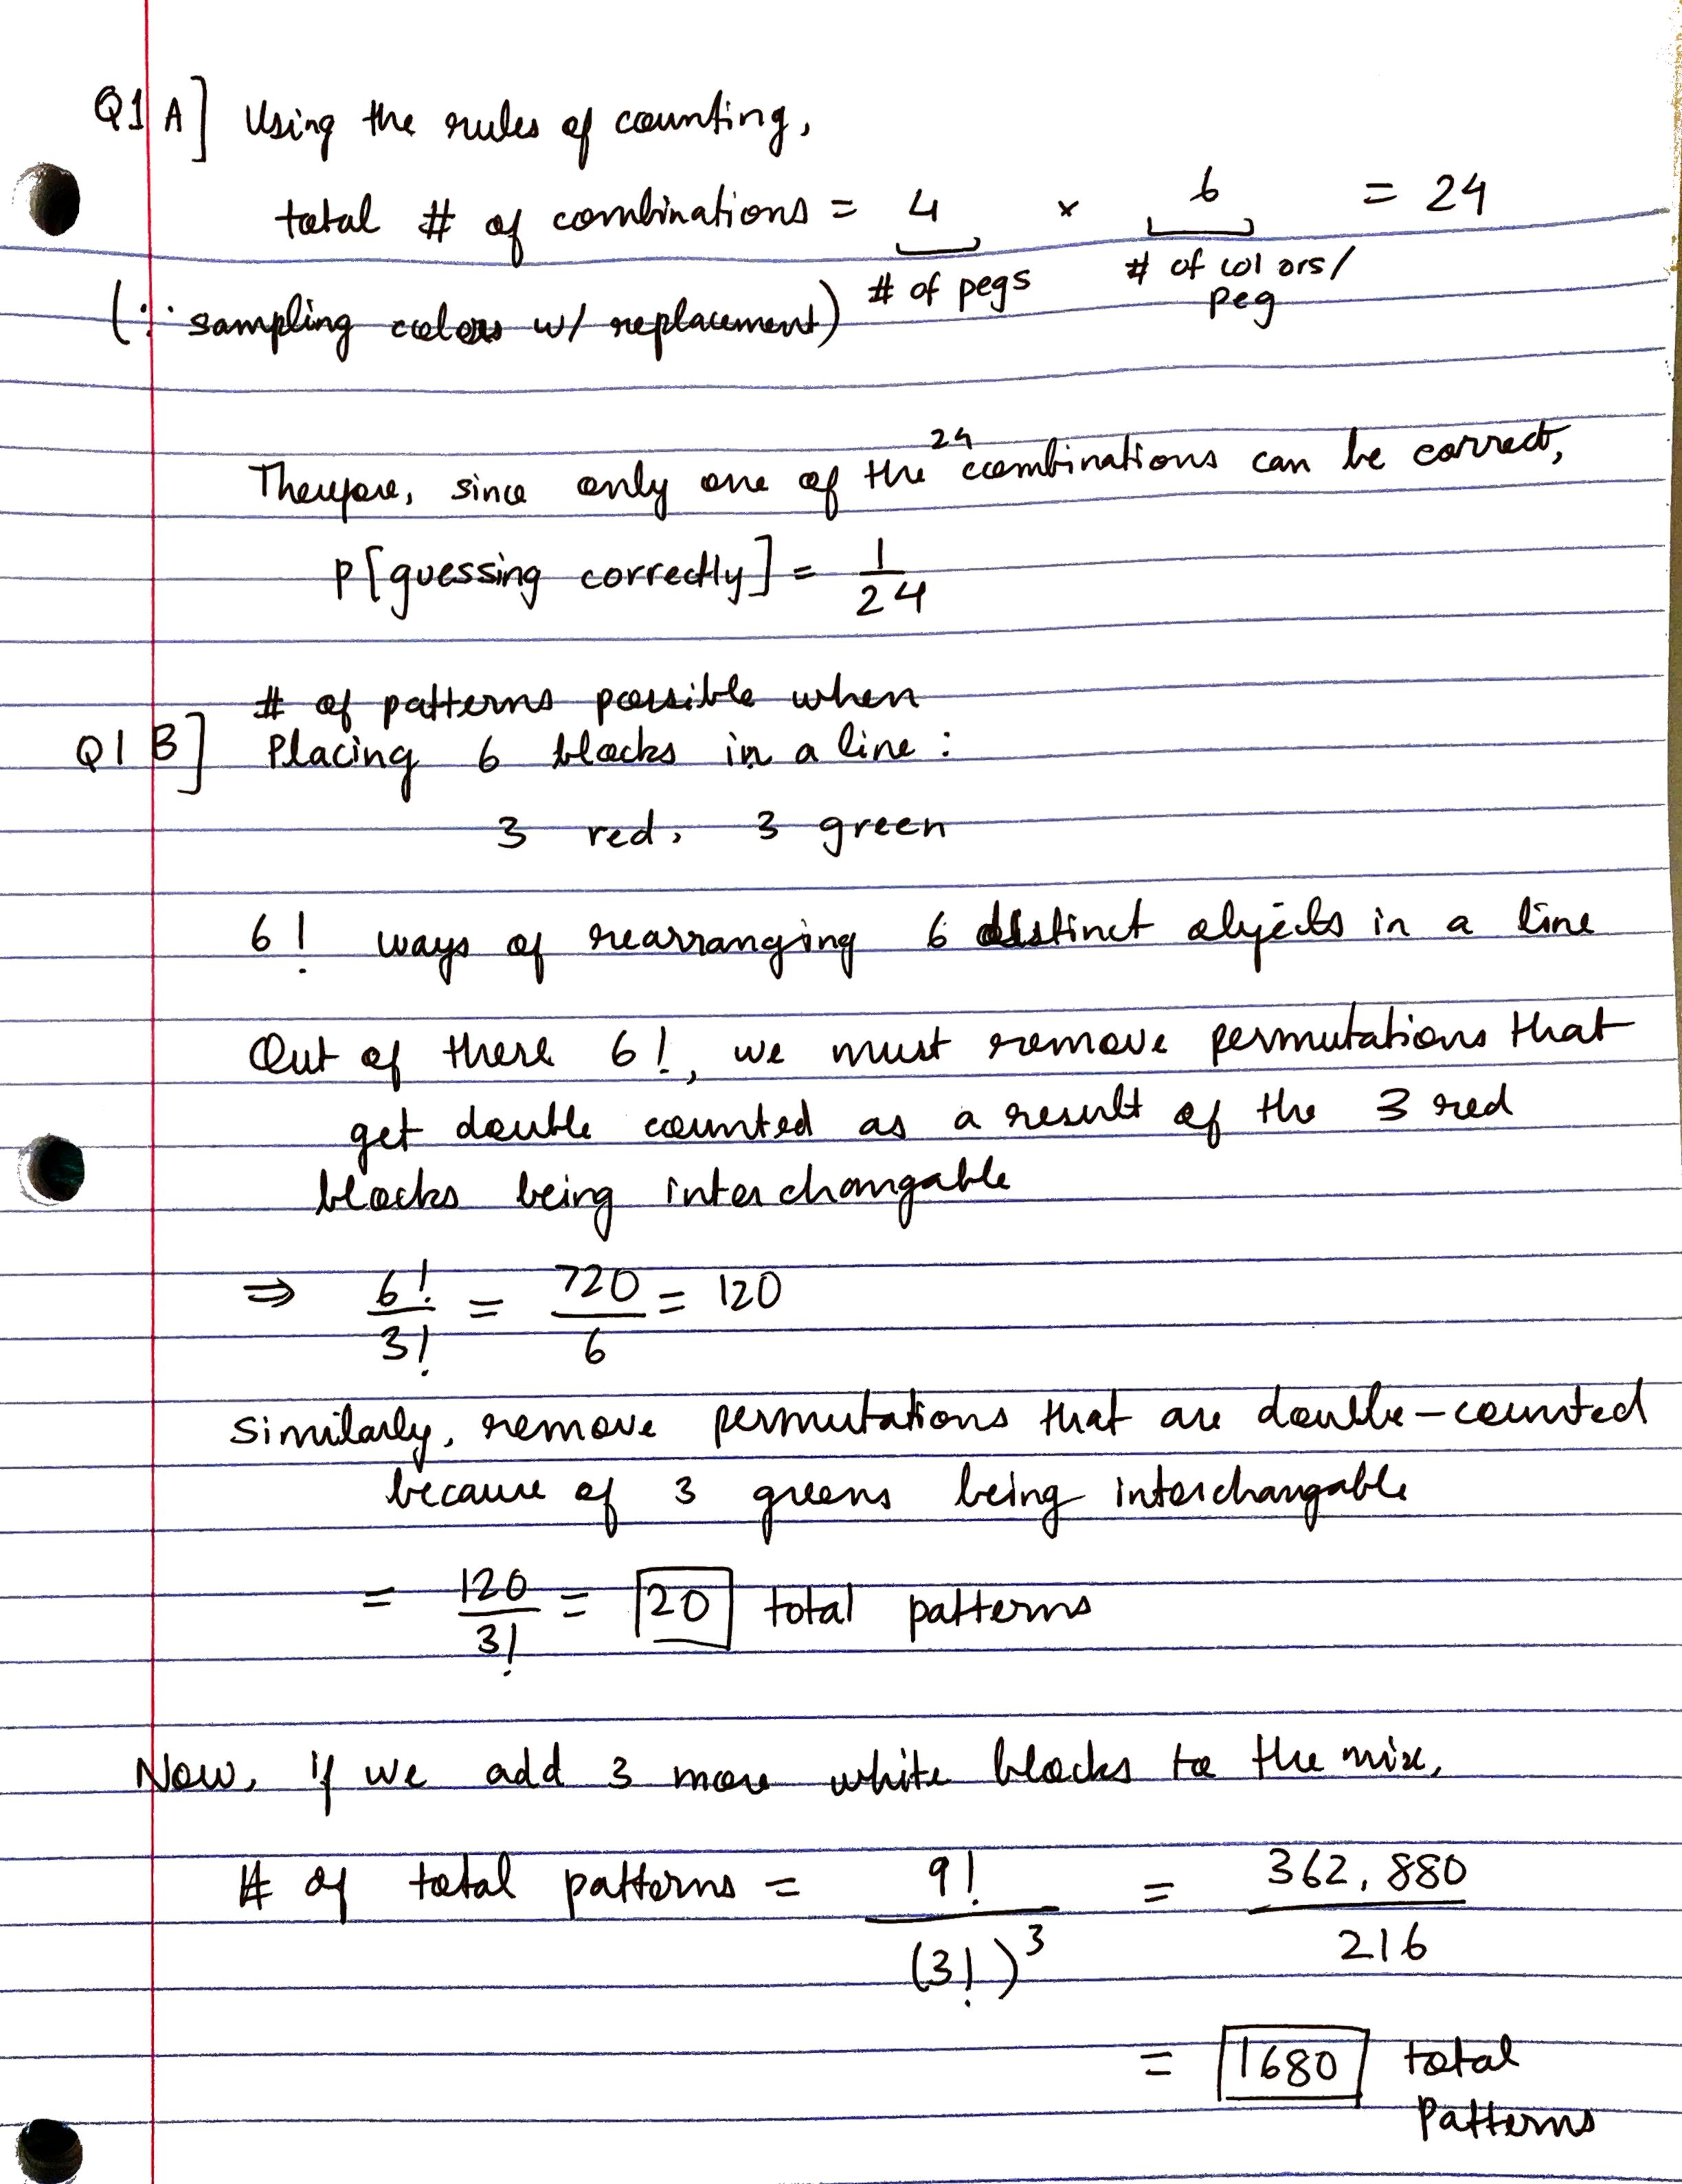 Q1 A] Using the rules of counting,
total # of combinations = 4 × 6 = 24
# of pegs # of colors/
peg
(∵ sampling colors w/ replacement)
Therefore, since only one of the 24 combinations can be correct,
P[guessing correctly] = 1/24
# of patterns possible when
Q1 B] Placing 6 blocks in a line:
3 red, 3 green
6! ways of rearranging 6 distinct objects in a line
Out of there 6!, we must remove permutations that
get double counted as a result of the 3 red
blocks being interchangable
⇒ 6!/3! = 720/6 = 120
Similarly, remove permutations that are double-counted
because of 3 greens being interchangable
= 120/3! = 20 total patterns
Now, if we add 3 more white blocks to the mix,
# of total patterns = 9!/(3!)³ = 362,880/216
= 1680 total
patterns